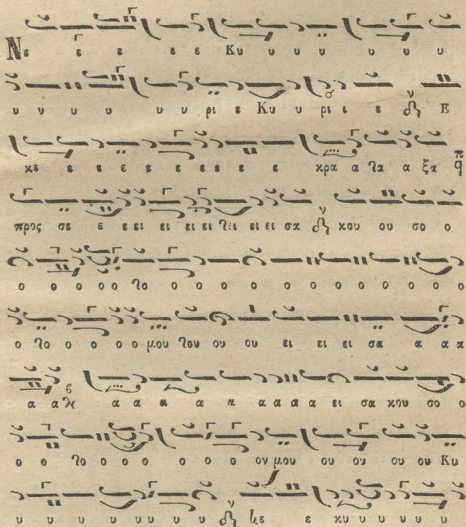 Νε ε ε ε ε Κυ υ υ υ υ υ υ
υ υ υ υ υ υ ρι ε Κυ υ ρι ι ε Ε
κε ε ε ε ε ε ε ε ε κρα α γα α ξα
προς σε ε ε ει ει ει ει γει ει ει σα κου ου σο ο
ο ο ο ο ο γο ο ο ο ο ο ο ο ο ο ο ο
ο γο ο ο ο ο μου γου ου ου ει ει ει σα α α α
α α α α α α α α α α α ει σα κου σο ο
ο ο γο ο ο ο ο ο ο ον μου ου ου ου ου Κυ
υ υ υ υ υ υ υ υ ε κυ υ υ υ υ